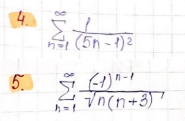 4. \sum_{n=1}^{\infty} \frac{1}{(5n-1)^2}
5. \sum_{n=1}^{\infty} \frac{(-1)^{n-1}}{\sqrt{n(n+3)}}